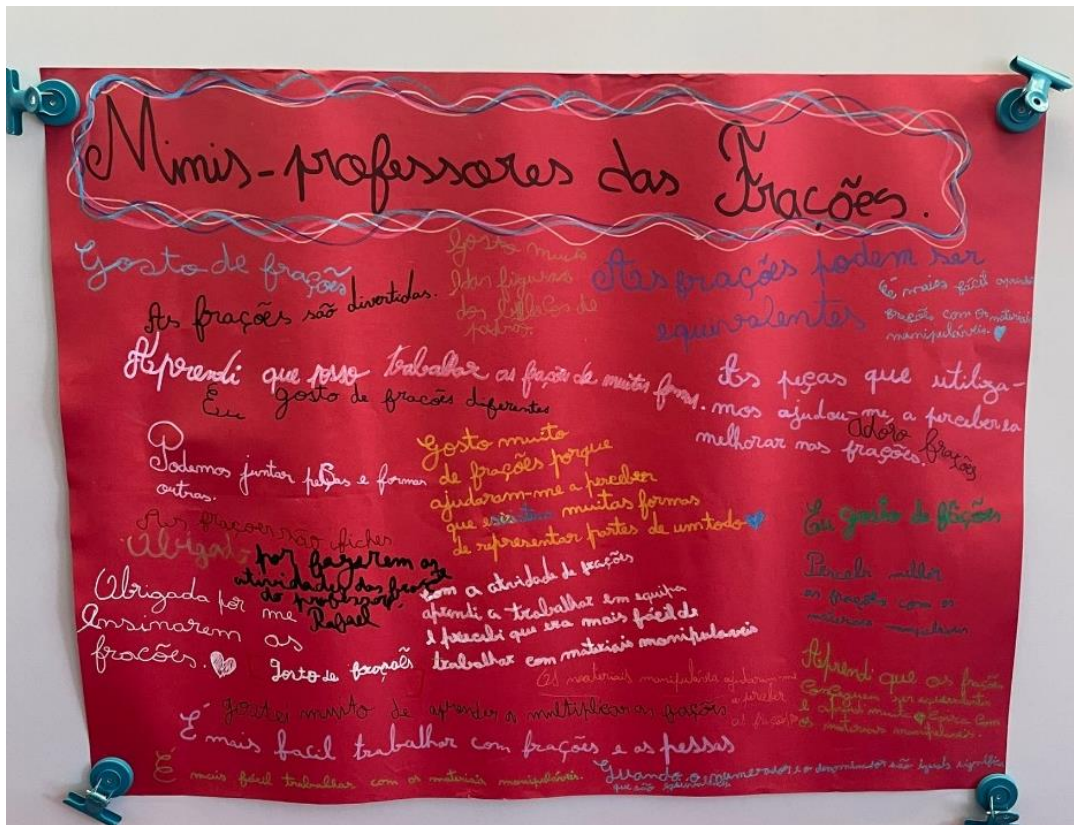 Minis-professores das Frações.
Gosto de frações
As frações são divertidas.
Gosto muito
das figuras
dos blocos de
padrões.
As frações podem ser
equivalentes
É mais fácil
frações com os materiais
manipuláveis.
Aprendi que posso trabalhar as frações de muitas formas.
Eu gosto de fracões diferentes
As peças que utiliza-
mos ajudou-me a perceber e a
melhorar nas frações.
Adoro frações
Podemos juntar peças e formar
outras.
Gosto muito
de frações porque
ajudaram-me a perceber
que existem muitas formas
de representar partes de um todo
Eu gosto de frações
As fracoes são fiches
Obrigado por fazerem as
atividades das frações
do professor
Rafael
Percebi milhor
as frações com os
materiais manipulaveis
Obrigada por me
Ensinarem as
fracões.
Gosto de frações
com a atividade de frações
aprendi a trabalhar em equipa
e precebi que era mais fácil de
trabalhar com matériais manipulaveis
Os materiais manipulavis ajudaram-me
a perceber
as frações
Aprendi que as frações
conseguem ser equivalentes
e aprendi muito
os materiais manipuláveis.
gostei muito de aprender a multiplicar as frações
É mais facil trabalhar com frações e as pessas
É mais fácil trabalhar com os materiais manipuláveis.
Quando o numerador e o denominador são iguais significa
que são equivalentes